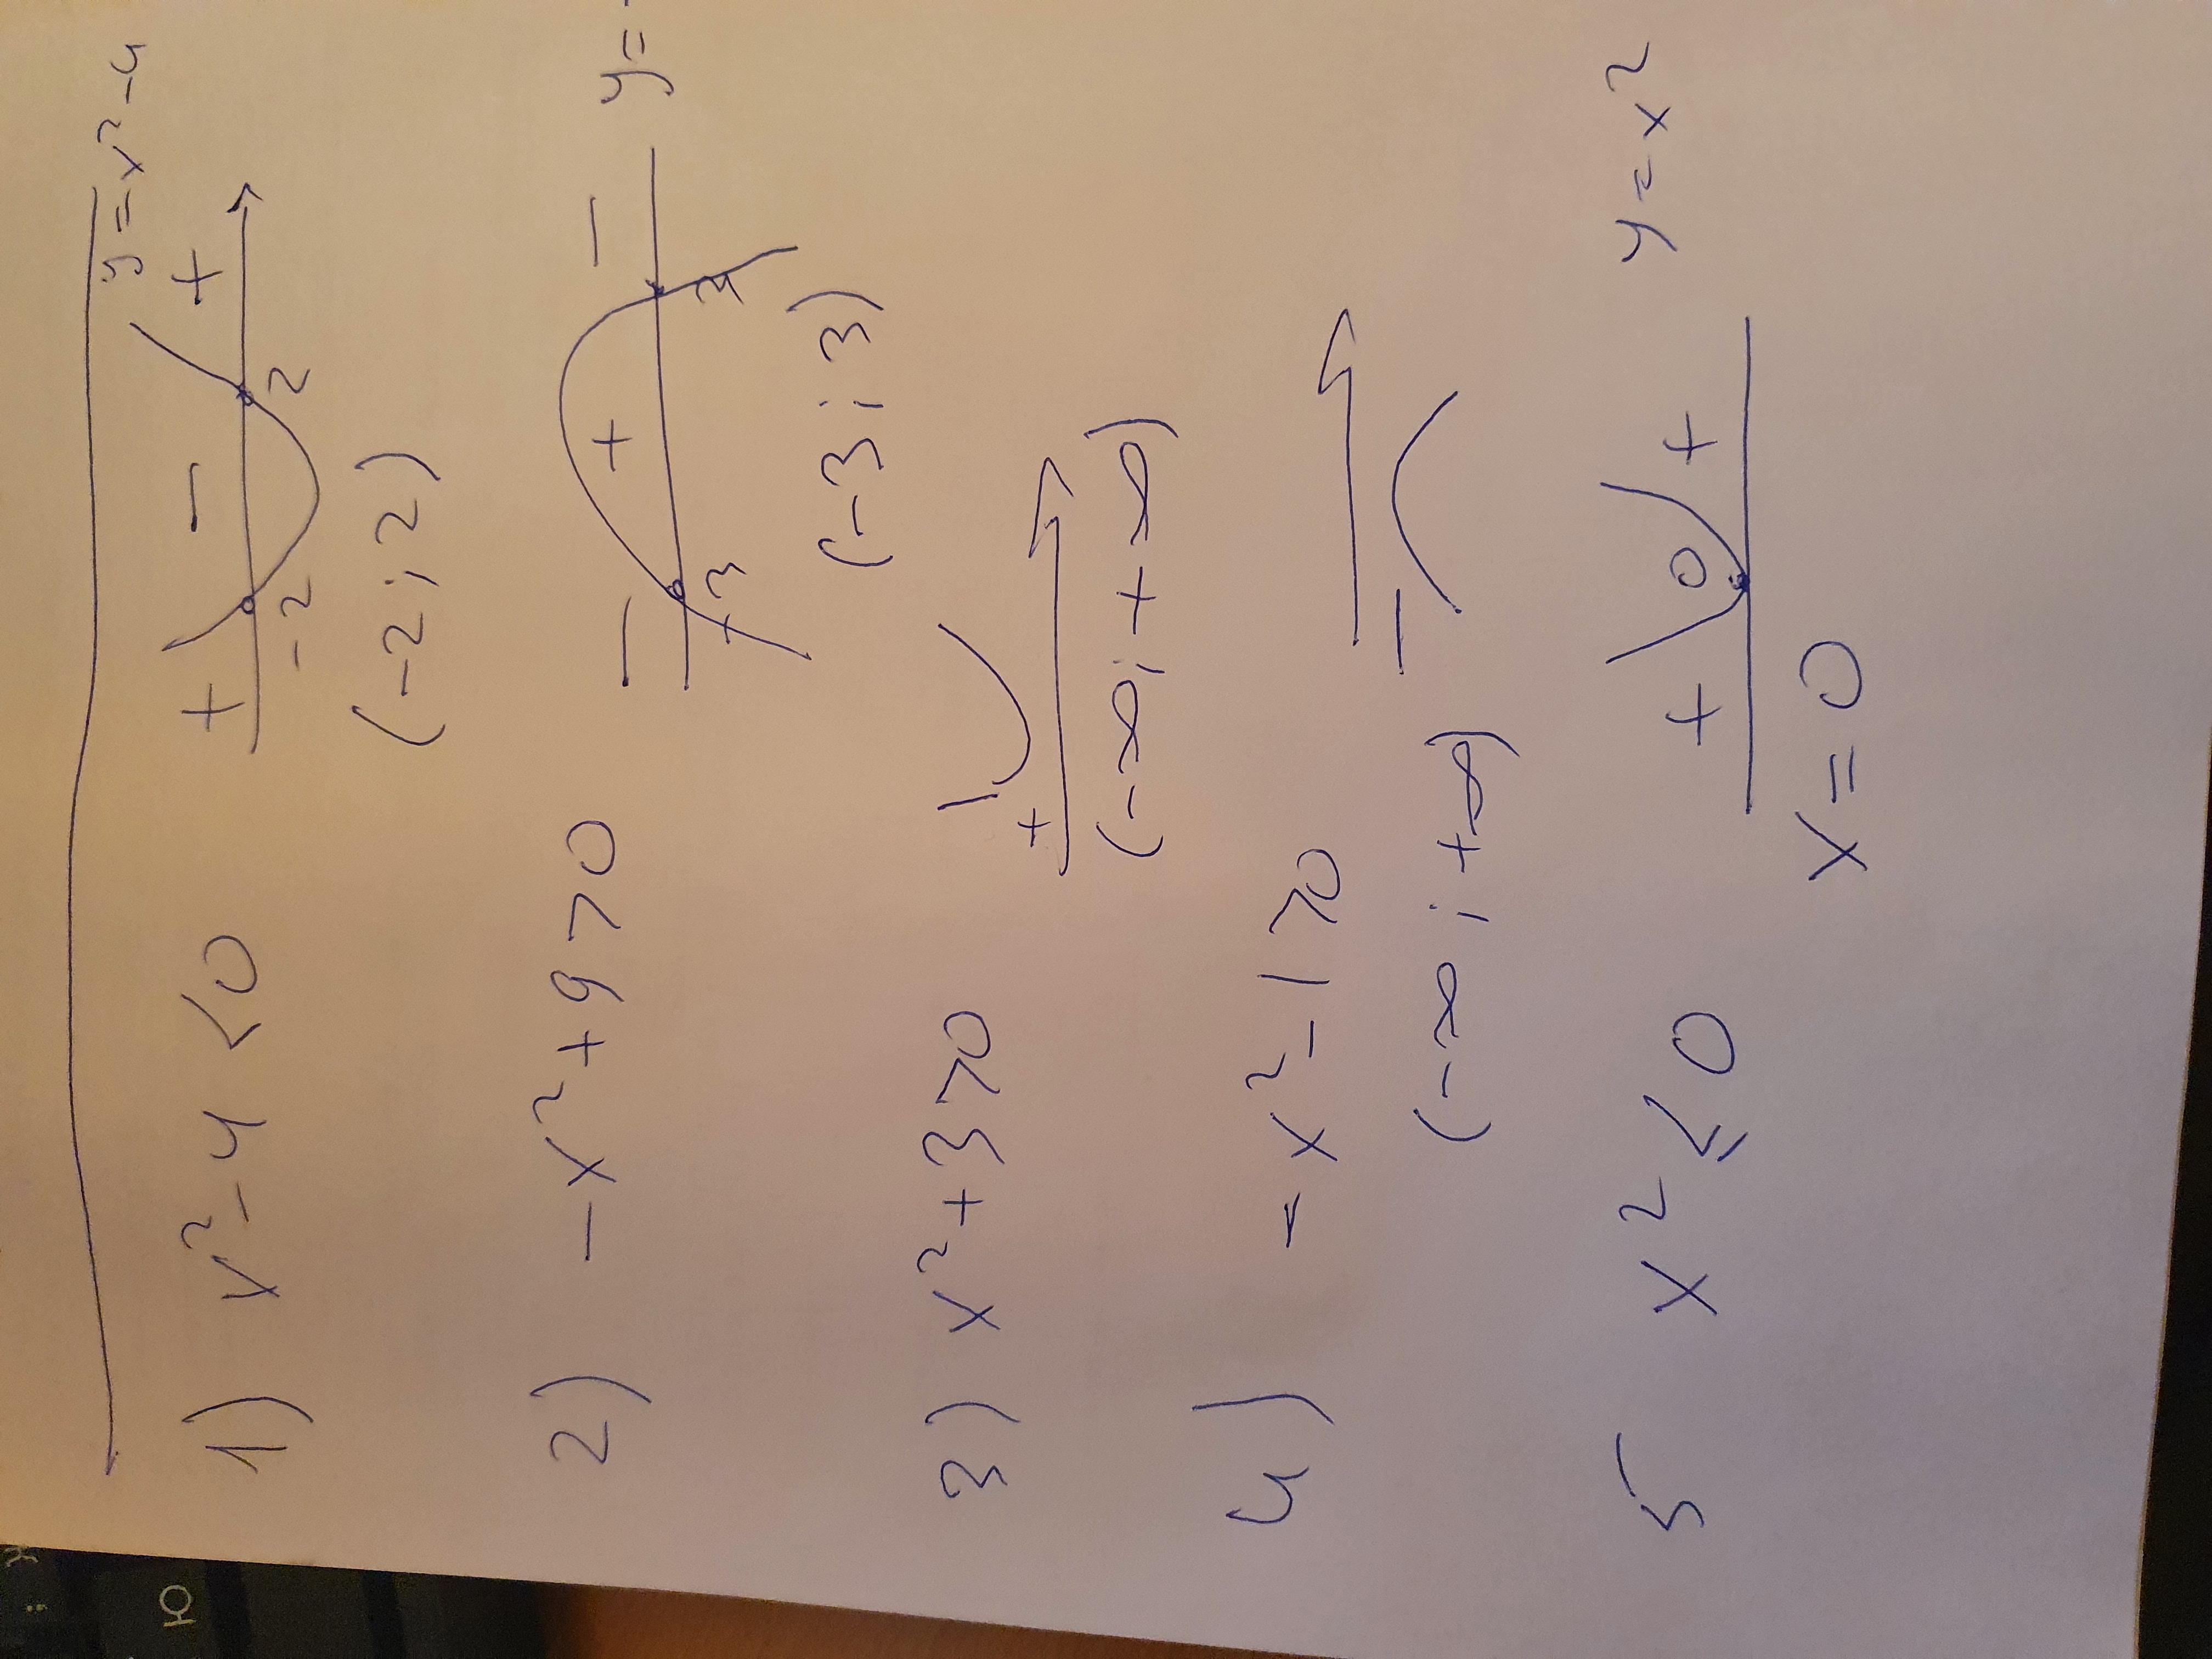 1) x² - 4 < 0 + - + y = x² - 4
-2 2
(-2 ; 2)
2) -x² + 9 > 0 - + - y = -
-3 3
(-3 ; 3)
3) x² + 3 > 0 +
(-∞ ; +∞)
4) -x² - 1 > 0 -
(-∞ ; +∞)
5 x² ≤ 0 + 0 + y = x²
x = 0
Ю